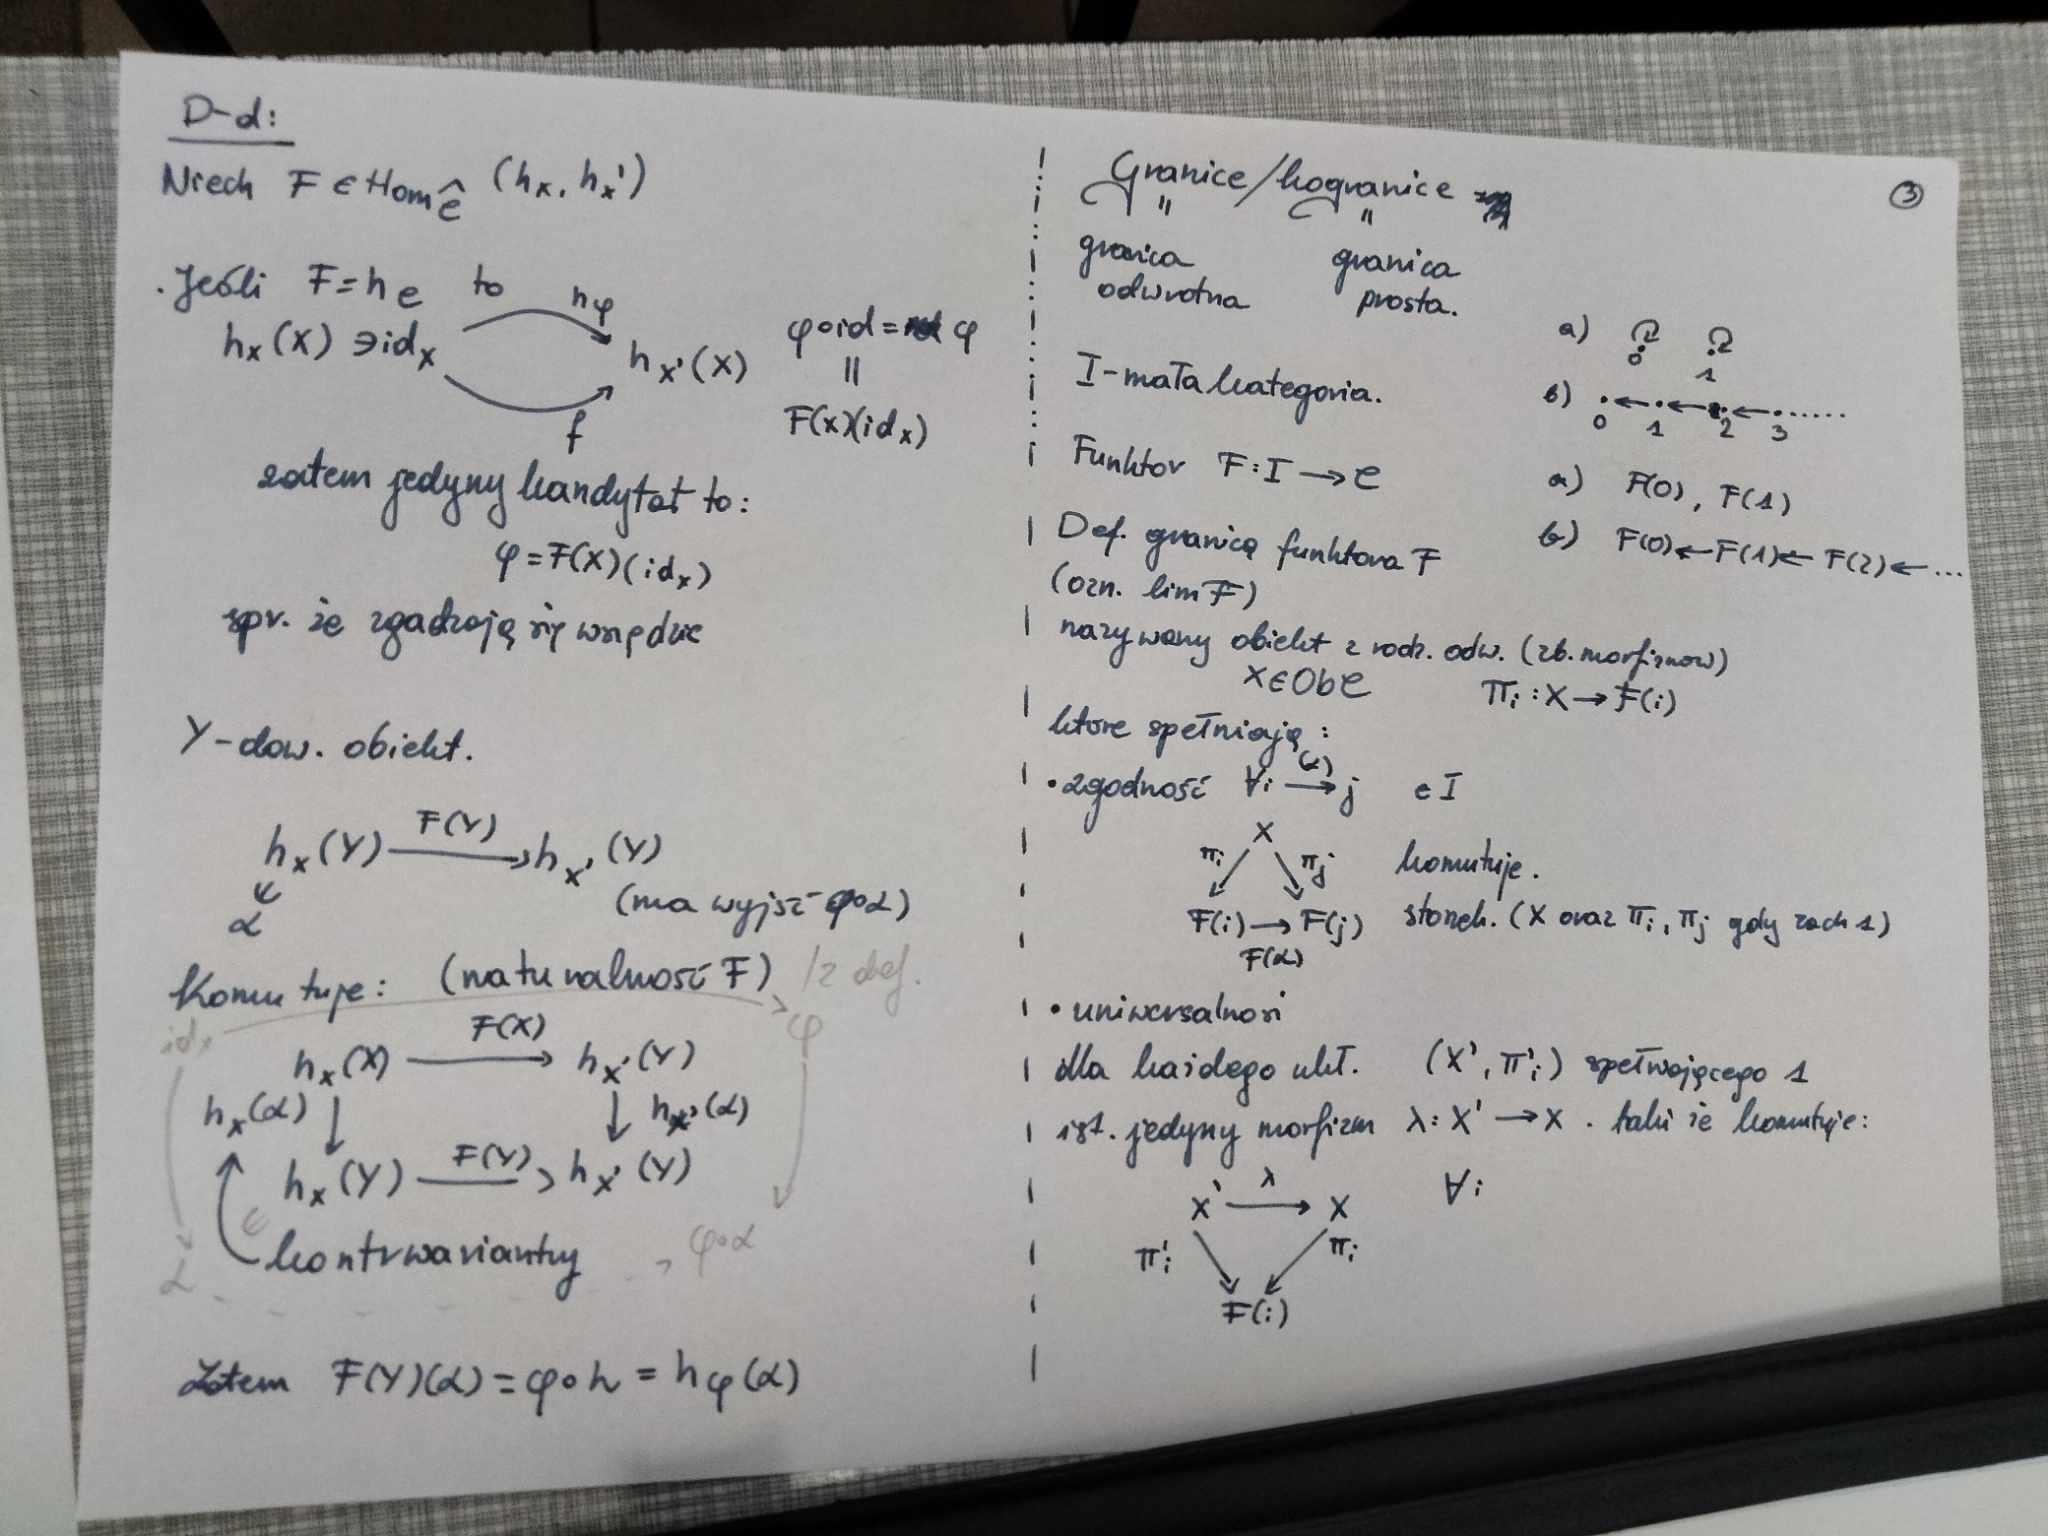 D-d:
Niech F ∈ Hom_Ĉ (h_x, h_x')
. Jeśli F = h_e to
h_φ
h_x(X) ∋ id_x
h_x'(X)
f
φ∘id = φ
||
F(x)(id_x)
zatem jedyny kandytat to:
φ = F(X)(id_x)
spr. że zgadzają się wszędzie
Y - dow. obiekt.
h_x(Y) → h_x'(Y)
F(Y)
α
(ma wyjść φ∘α)
Komutuje: (naturalność F) /z def.
id_x
φ
F(X)
h_x(X) → h_x'(Y)
h_x(α) ↓ ↓ h_x'(α)
F(Y)
h_x(Y) → h_x'(Y)
∈
kontrwariantny
α
φ∘α
Zatem F(Y)(α) = φ∘h = h_φ(α)
Granice/kogranice
③
" "
granica granica
odwrotna prosta.
I - mała kategoria.
a) 0 1
b) . ← . ← . ← . .....
0 1 2 3
Funktor F : I → C
a) F(0), F(1)
b) F(0) ← F(1) ← F(2) ← ...
Def. granicą funktora F
(ozn. lim F)
nazywamy obiekt z rodz. odw. (zb. morfizmow)
X ∈ Ob C π_i : X → F(i)
ktore spełniają :
• zgodność ∀ i → j ∈ I
(α)
X
π_i ↙ ↘ π_j komutuje.
F(i) → F(j) stożek. (X oraz π_i, π_j gdy zach 1)
F(α)
• uniwersalnosi
dla każdego ukł. (X', π'_i) spełniającego 1
ist. jedyny morfizm λ : X' → X . taki że komutuje:
λ
X' → X ∀ i
π'_i ↘ ↙ π_i
F(i)